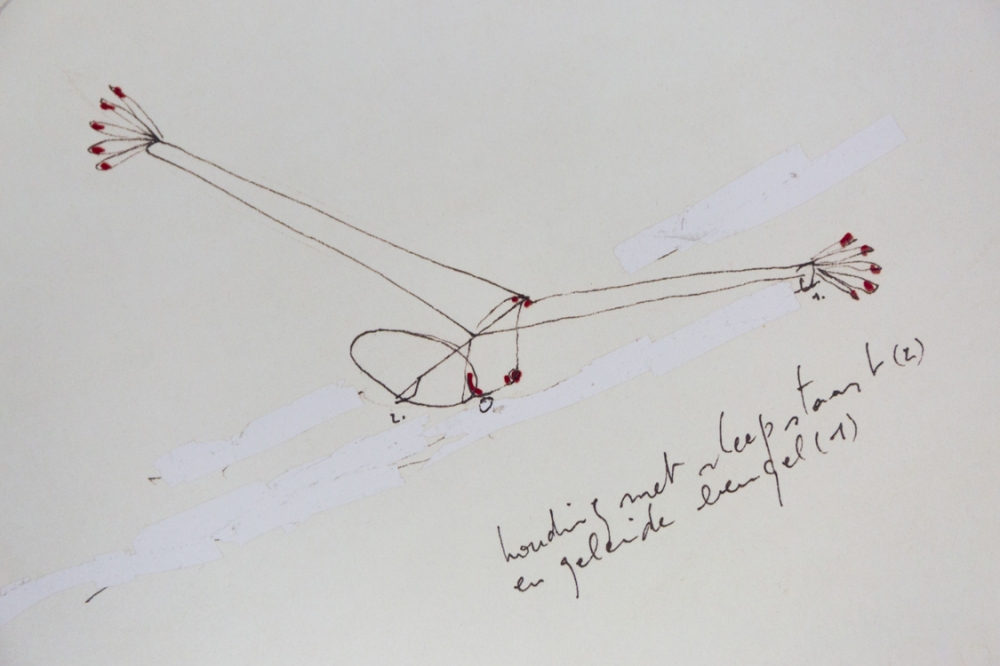 1.
2.
houding met sleepstaart (2)
en geleide beugel (1)